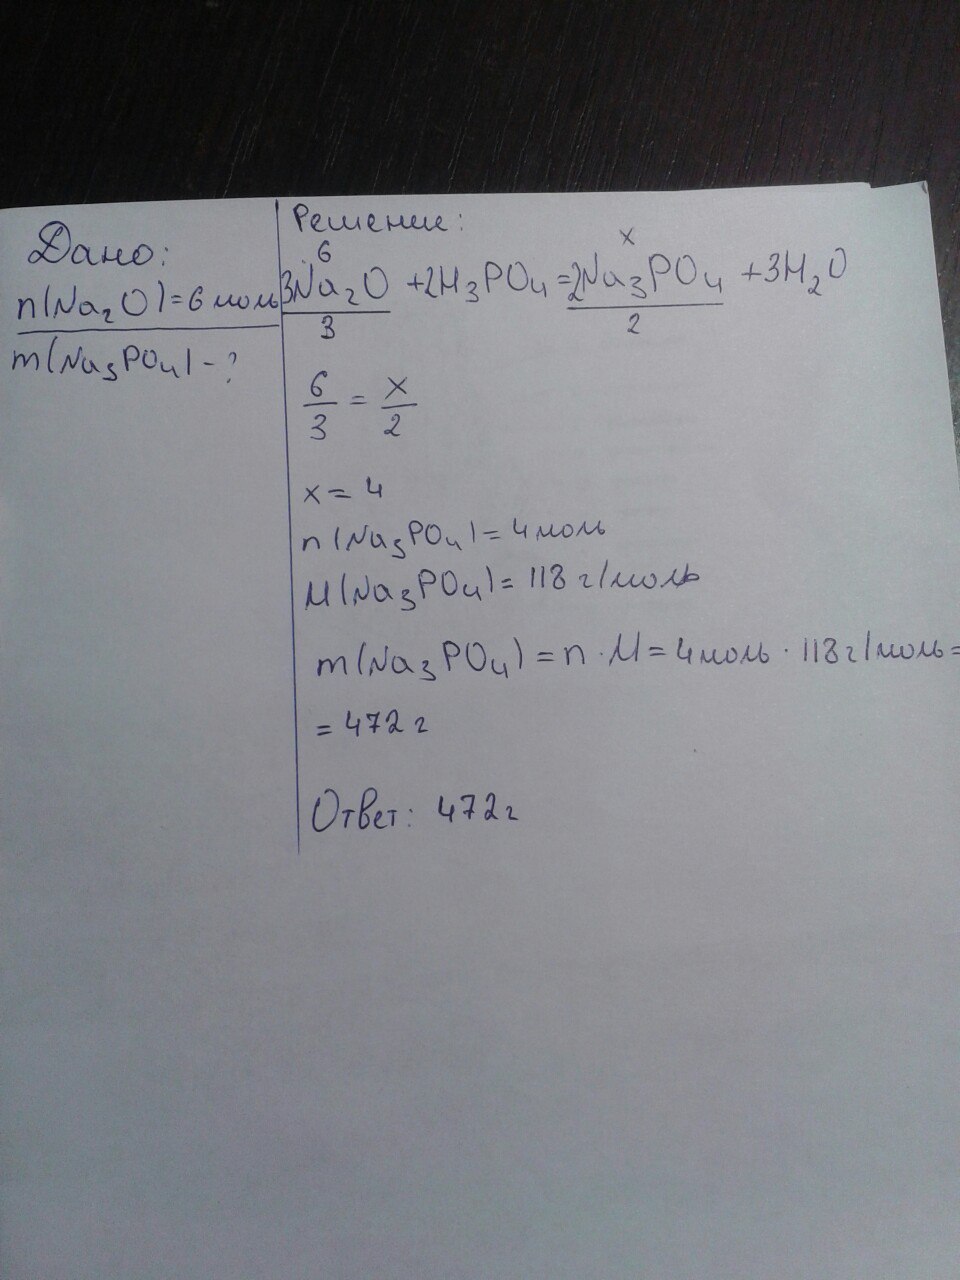 Дано:
n(Na₂O)=6 моль
m(Na₃PO₄)-?
Решение:
6 x
3Na₂O +2H₃PO₄=2Na₃PO₄ +3H₂O
3 2
6/3 = x/2
x = 4
n(Na₃PO₄)=4моль
M(Na₃PO₄)= 118 г/моль
m(Na₃PO₄) = n · M = 4моль · 118г/моль=
= 472 г
Ответ: 472г